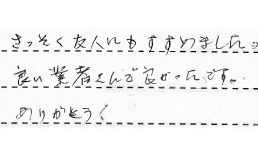 さっそく友人にもすすめました。
良い業者さんで良かったです。
ありがとう